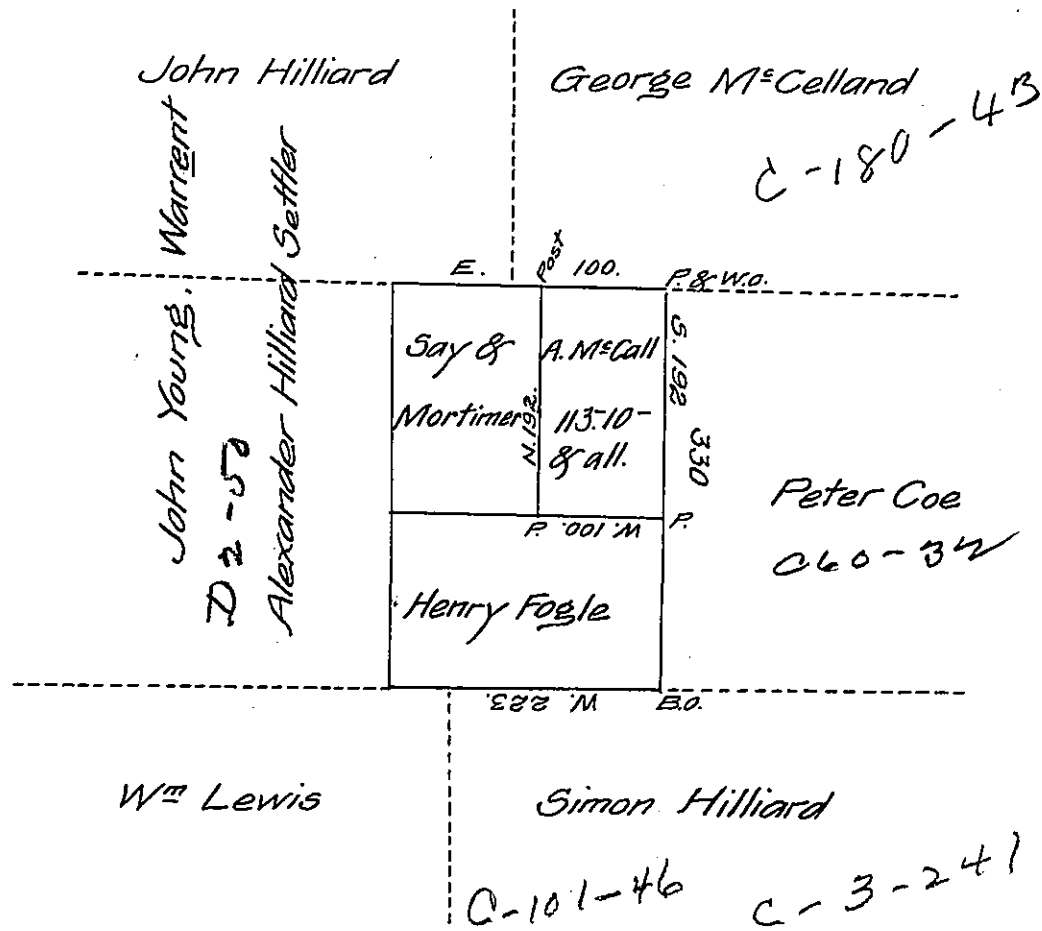 John Hilliard
George McCelland
C-180-4B
John Young. Warrent
D2-50
Alexander Hilliard Settler
E.
Post
100.
P. & W.O.
Say &
Mortimer
N. 192.
A. McCall
113-10-
& all.
S. 192
330
P.
W. 100.
P.
Peter Coe
C60-32
Henry Fogle
W. 223.
B.O.
Wm Lewis
Simon Hilliard
C-101-46
C-3-241